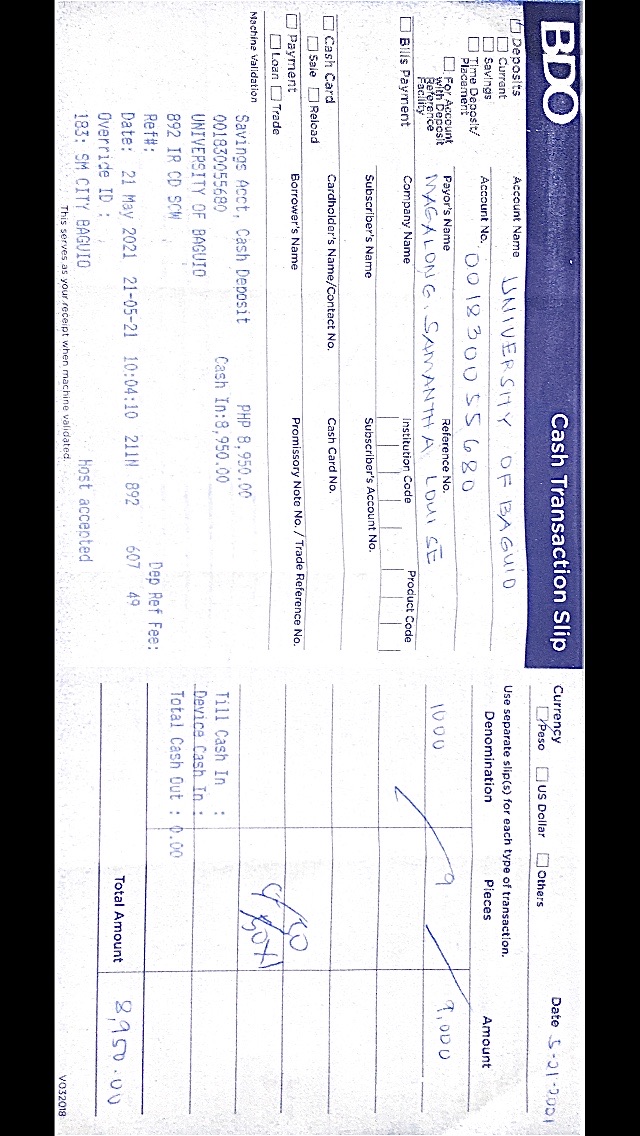 BDO
Cash Transaction Slip
Deposits
Current
Savings
Time Deposit/
Placement
For Account
with Deposit
Reference
Facility
Bills Payment
Cash Card
Sale Reload
Payment
Loan Trade
Account Name UNIVERSITY OF BAGUIO
Account No. 001830055680
Payor's Name Reference No.
MAGALONG SAMANTHA LOUISE
Company Name Institution Code Product Code
Subscriber's Name Subscriber's Account No.
Cardholder's Name/Contact No. Cash Card No.
Borrower's Name Promissory Note No. / Trade Reference No.
Machine Validation
Savings Acct, Cash Deposit PHP 8,950.00
001830055680 Cash In:8,950.00
UNIVERSITY OF BAGUIO
892 IR CD SCW
Ref#: Dep Ref Fee:
Date: 21 May 2021 21-05-21 10:04:10 211N 892 607 49
Override ID :
183: SM CITY BAGUIO Host accepted
This serves as your receipt when machine validated.
Currency Date 5-21-2021
Peso US Dollar Others
Use separate slip(s) for each type of transaction.
Denomination Pieces Amount
1000 9 9,000
Till Cash In :
Device Cash In :
Total Cash Out : 0.00
Total Amount 8,950.00
V032018